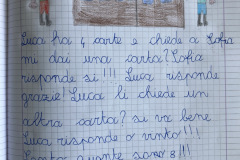 Luca ha 4 carte e chiede a Sofia
mi dai una carta? Sofia
risponde si!!! Luca risponde
grazie! Luca li chiede un
altra carta? si va bene
Luca risponde o vinto!!!
quante sono 8!!!